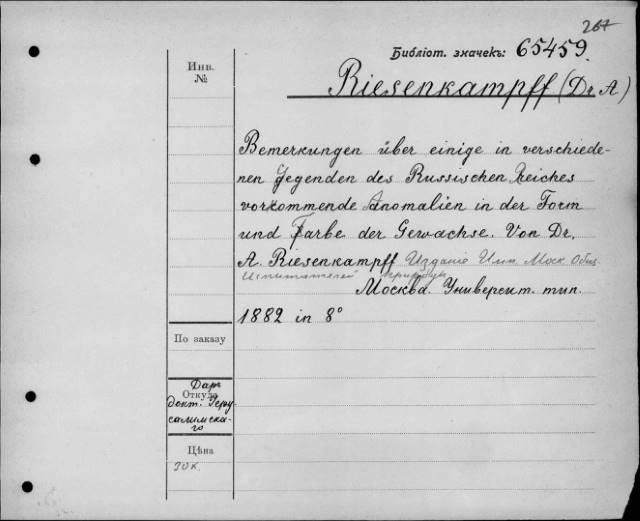 267
Библіот. значекъ: 65459.
Инв.
№
Riesenkampff (Dr. A)
Bemerkungen über einige in verschiede-
nen Gegenden des Russischen Reiches
vorkommende Anomalien in der Form
und Farbe der Gewachse. Von Dr.
A. Riesenkampff Изданіе Имп. Моск Общ.
Испытателей природы
Москва. Университ. тип.
1882 in 8°
По заказу
Откуда
Даръ
докт. Іеру-
салимска-
го
Цѣна
30 к.